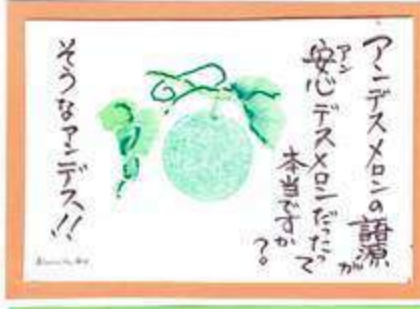 アンデスメロンの語源が
安心デスメロンだったって
アン
本当ですか?。
そうなアンデス!!